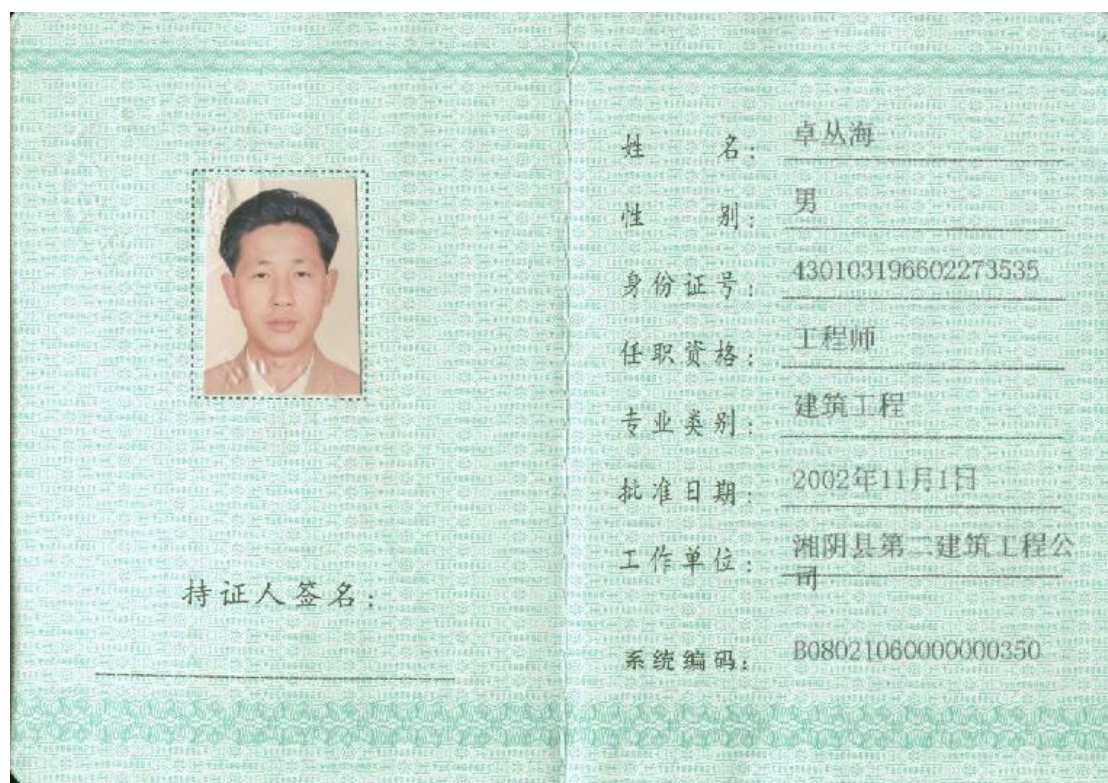 姓名：卓丛海
性别：男
身份证号：430103196602273535
任职资格：工程师
专业类别：建筑工程
批准日期：2002年11月1日
工作单位：湘阴县第二建筑工程公
司
持证人签名：
系统编码：B08021060000000350